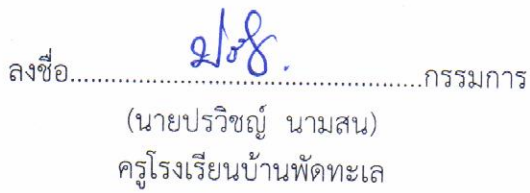 ลงชื่อ..........................................................กรรมการ
(นายปรวิชญ์ นามสน)
ครูโรงเรียนบ้านพัดทะเล